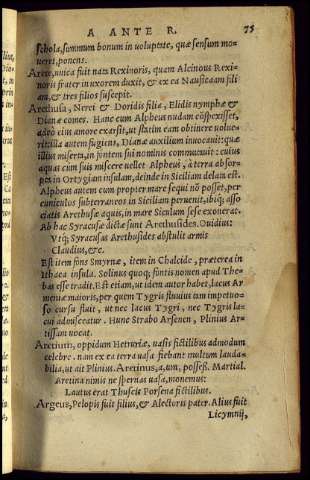 A ANTE R. 75
scholæ, summum bonum in voluptate, quæ sensum mo-
ueret, ponens.
Arete, vnica fuit nata Rexinoris, quam Alcinous Rexi-
noris frater in vxorem duxit, & ex ea Nausicaam fili
am, & tres filios suscepit.
Arethusa, Nerei & Doridis filia, Elidis nympha &
Dianæ comes. Hanc cum Alpheus nudam cōspexisset,
adeò eius amore exarsit, ut statim eam obtinere volue-
rit: illa autem fugiens, Dianæ auxilium inuocauit: quæ
illius miserta, in fontem sui nominis commutauit: cuius
aquas cùm suis miscere vellet Alpheus, à terra absor-
pta in Ortygiam insulam, deinde in Siciliam delata est.
Alpheus autem cum propter mare sequi nō posset, per
cuniculos subterraneos in Siciliam peruenit, ibiq; asso
ciatis Arethusæ aquis, in mare Siculum sese exonerat.
Ab hac Syracusæ dictæ sunt Arethusides. Ouidius:
Vtq; Syracusas Arethusidas abstulit armis
Claudius, &c.
Est item fons Smyrnæ, item in Chalcide, præterea in
Ithaca insula. Solinus quoq; fontis nomen apud The-
bas esse tradit. Est etiam, ut idem autor habet, lacus Ar
meniæ maioris, per quem Tygris fluuius tam impetuo-
so cursu fluit, ut nec lacus Tygri, nec Tygris la-
cui admisceatur. Hunc Strabo Arsenen, Plinius Ar-
tissam vocat.
Aretium, oppidum Hetruriæ, vasis fictilibus admodum
celebre. nam ex ea terra vasa fiebant multum lauda-
bilia, ut ait Plinius. Aretinus, a, um, posseß. Martial.
Aretina nimis ne spernas vasa, monemus:
Lautus erat Thuscis Porsena fictilibus.
Argeus, Pelopis fuit filius, & Alectoris pater. Alius fuit
Licymnij,